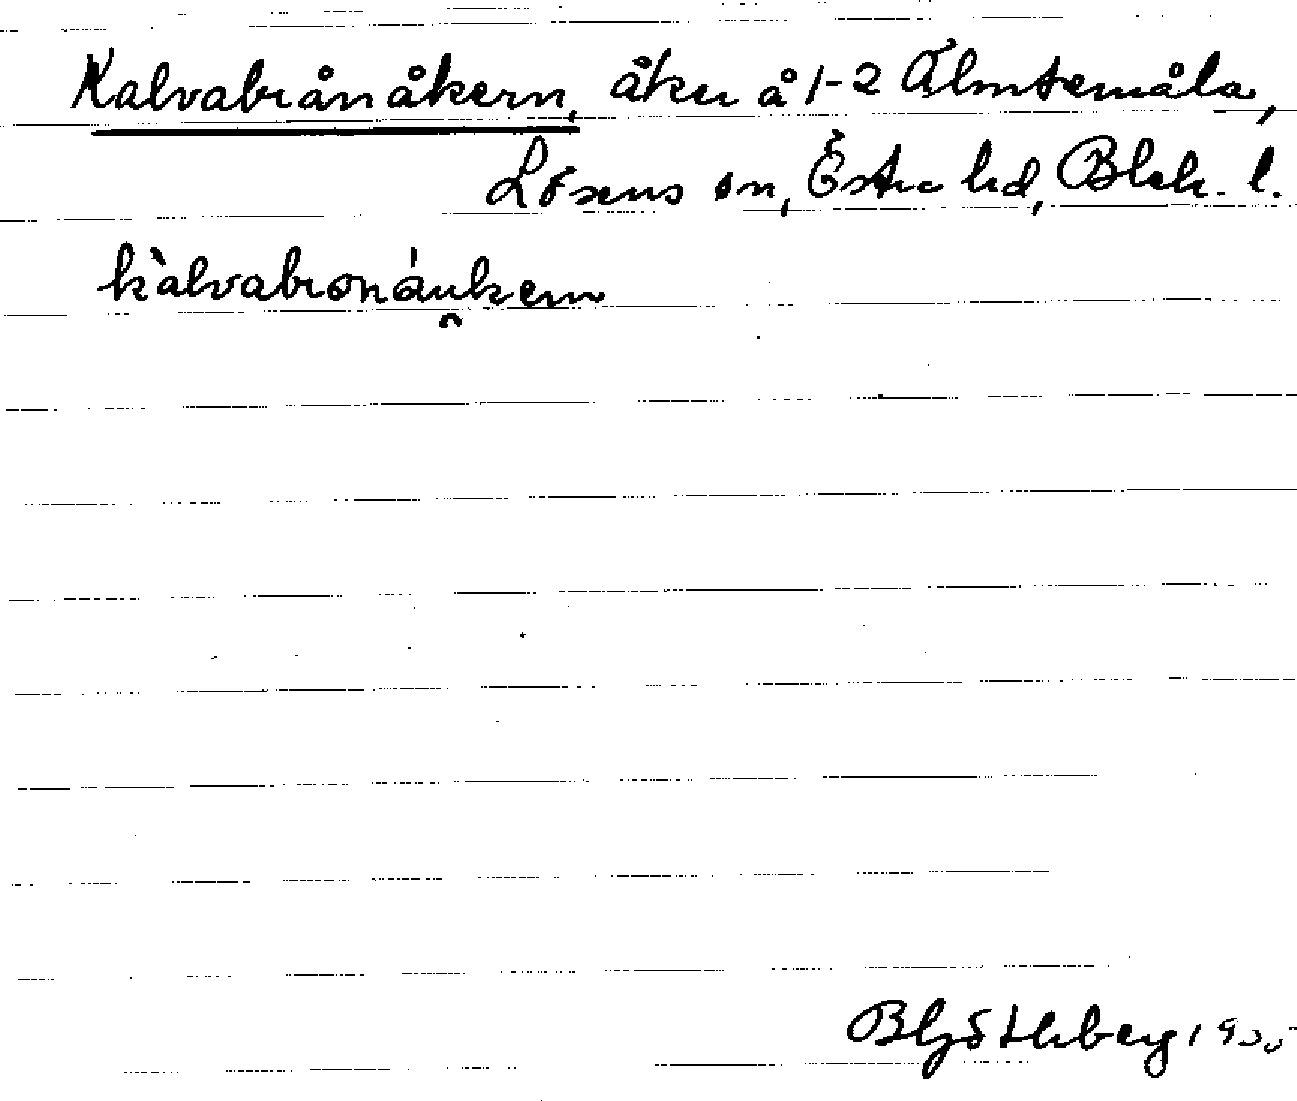 Kalvabrånåkern, åker å 1-2 Älmtemåla,
Lösens sn, Östra hd, Blek. l.
kàlvabronáukern
B Göthberg 19